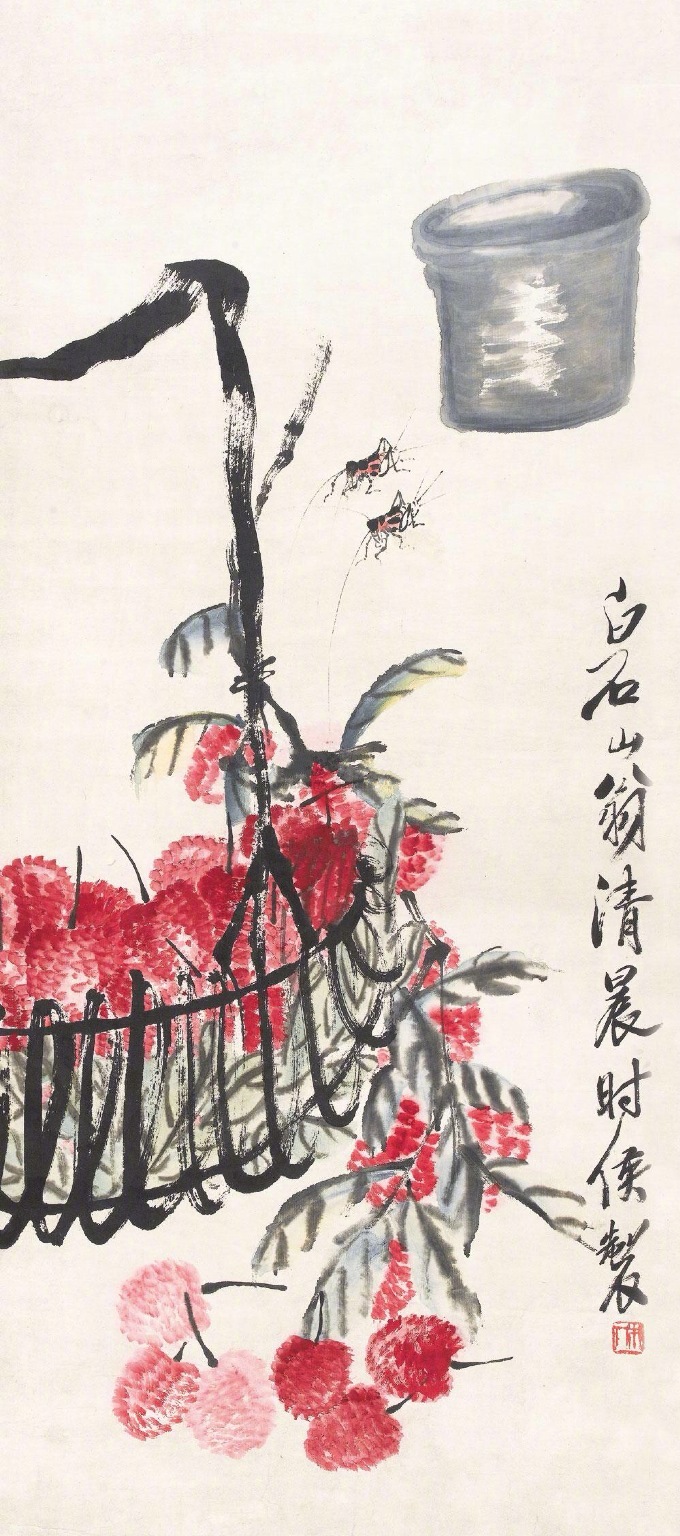 白石山翁清晨时侯製